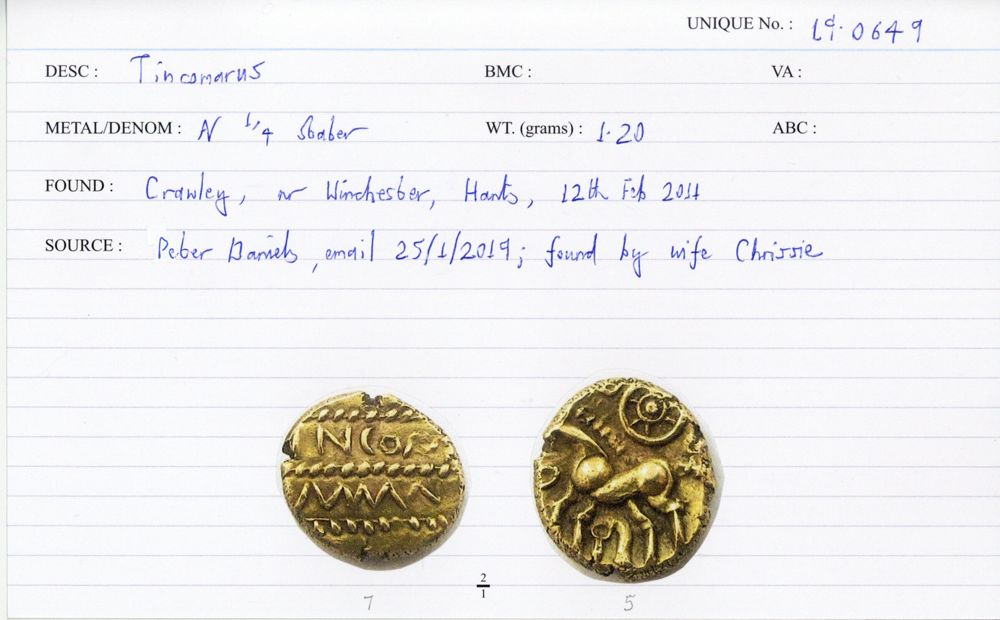 UNIQUE No. : 19.0649
DESC : Tincomarus BMC : VA :
METAL/DENOM : N 1/4 Stater WT. (grams) : 1.20 ABC :
FOUND : Crawley, nr Winchester, Hants, 12th Feb 2011
SOURCE : Peter Daniels, email 25/1/2019; found by wife Chrissie
INCOM
2/1
7 5